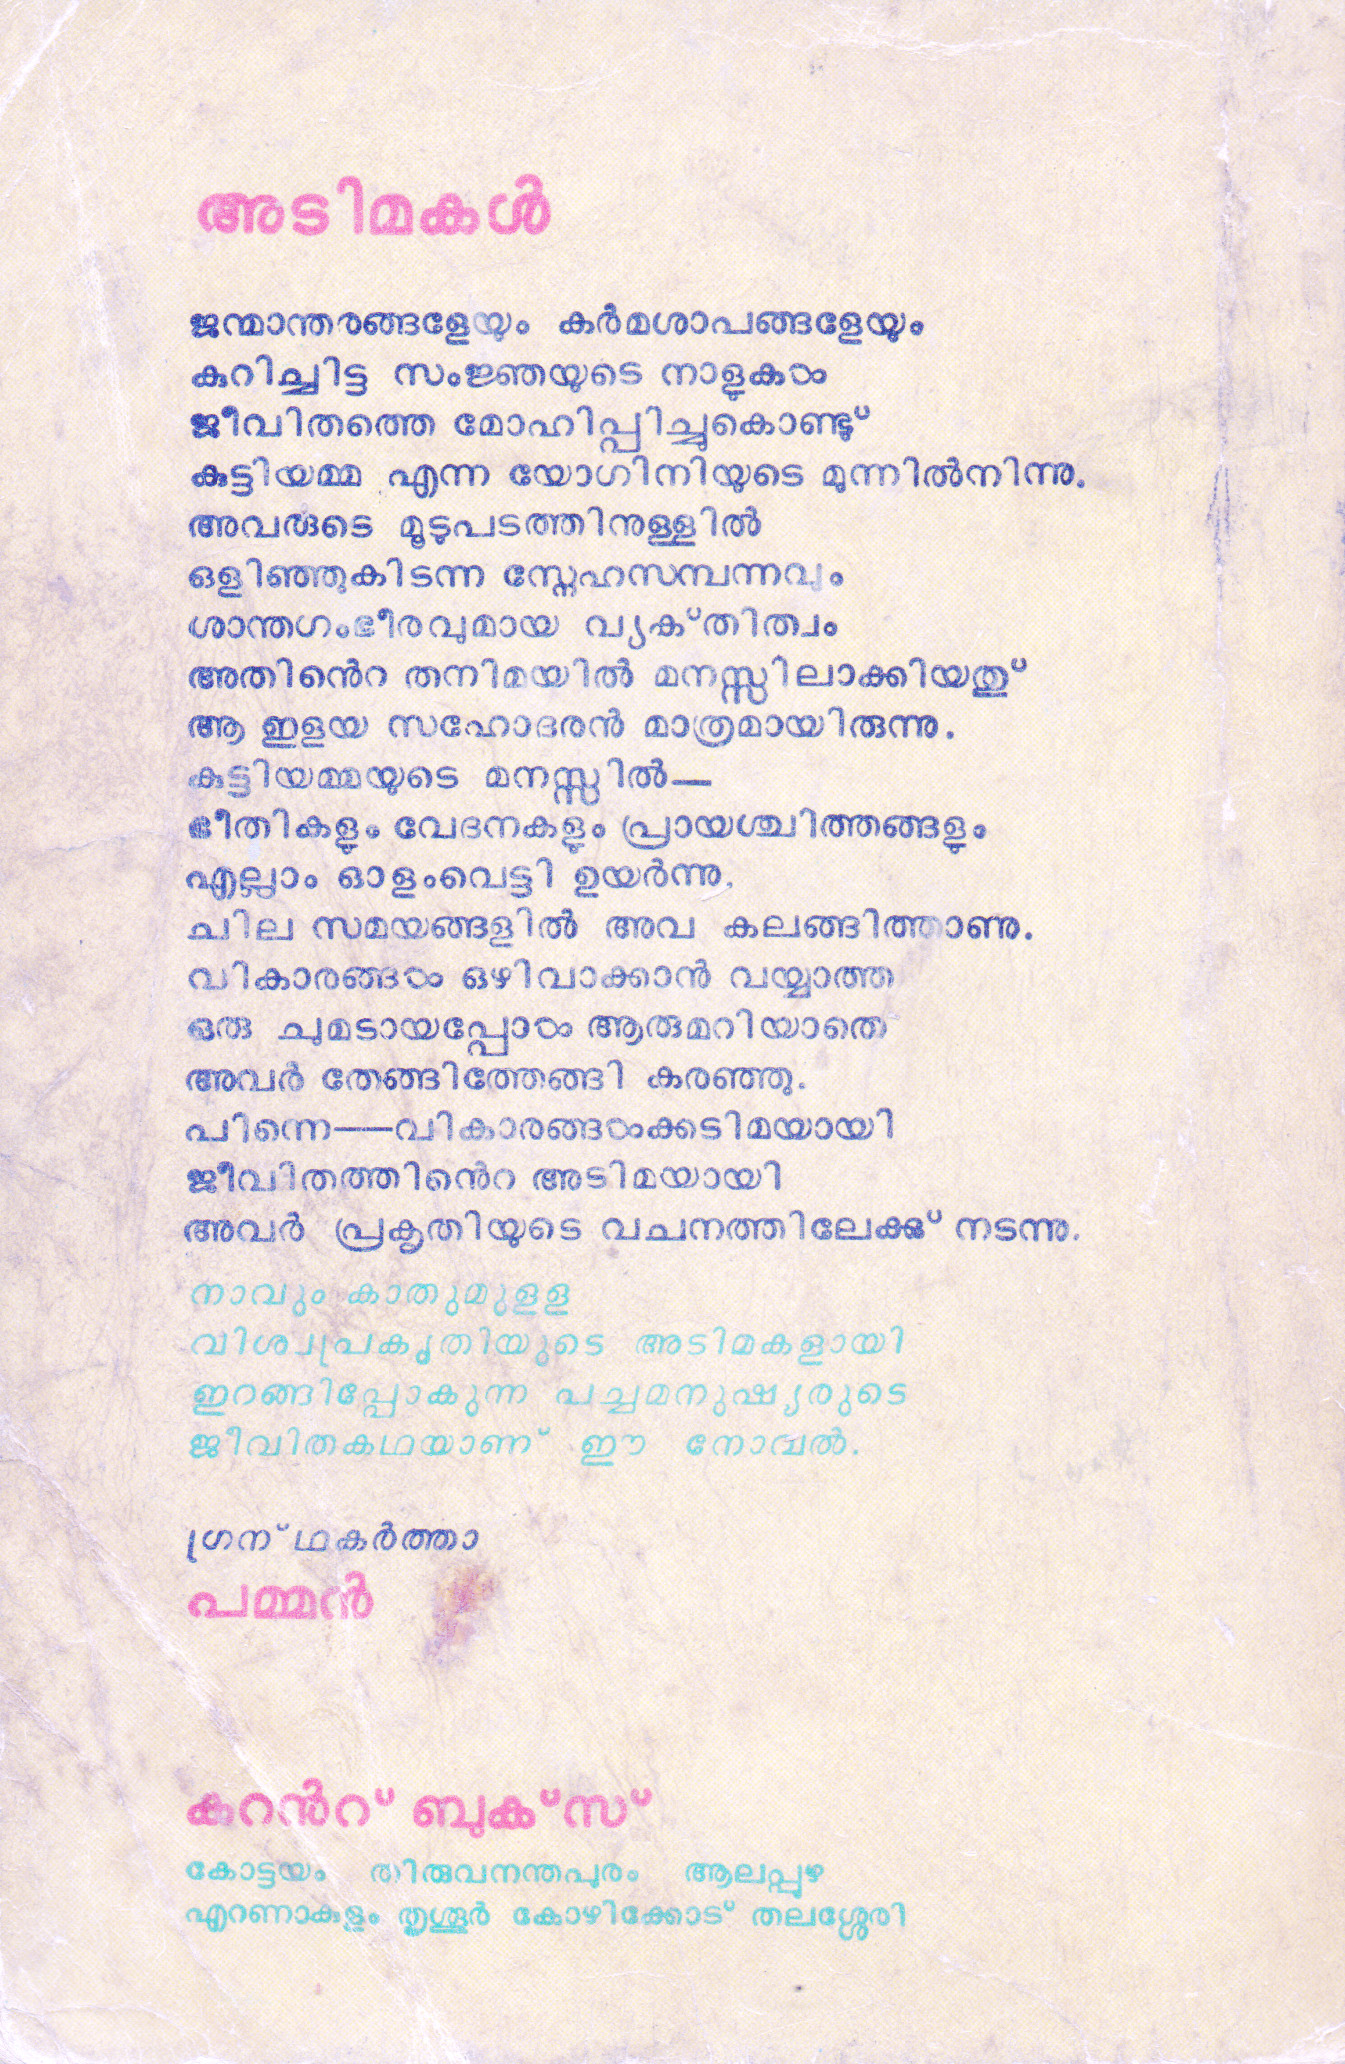 അടിമകൾ
ജന്മാന്തരങ്ങളേയും കർമശാപങ്ങളേയും
കുറിച്ചിട്ട സംജ്ഞയുടെ നാളുകൾ
ജീവിതത്തെ മോഹിപ്പിച്ചുകൊണ്ടു്
കുട്ടിയമ്മ എന്ന യോഗിനിയുടെ മുന്നിൽനിന്നു.
അവരുടെ മൂടുപടത്തിനുള്ളിൽ
ഒളിഞ്ഞുകിടന്ന സ്നേഹസമ്പന്നവും
ശാന്തഗംഭീരവുമായ വ്യക്തിത്വം
അതിൻെറ തനിമയിൽ മനസ്സിലാക്കിയതു്
ആ ഇളയ സഹോദരൻ മാത്രമായിരുന്നു.
കുട്ടിയമ്മയുടെ മനസ്സിൽ—
ഭീതികളും വേദനകളും പ്രായശ്ചിത്തങ്ങളും
എല്ലാം ഓളംവെട്ടി ഉയർന്നു.
ചില സമയങ്ങളിൽ അവ കലങ്ങിത്താണു.
വികാരങ്ങൾ ഒഴിവാക്കാൻ വയ്യാത്ത
ഒരു ചുമടായപ്പോൾ ആരുമറിയാതെ
അവർ തേങ്ങിത്തേങ്ങി കരഞ്ഞു.
പിന്നെ——വികാരങ്ങൾക്കടിമയായി
ജീവിതത്തിൻെറ അടിമയായി
അവർ പ്രകൃതിയുടെ വചനത്തിലേക്കു് നടന്നു.
നാവും കാതുമുളള
വിശ്വപ്രകൃതിയുടെ അടിമകളായി
ഇറങ്ങിപ്പോകുന്ന പച്ചമനുഷ്യരുടെ
ജീവിതകഥയാണ് ഈ നോവൽ.
ഗ്രന്ഥകർത്താ
പമ്മൻ
കറൻറ് ബുക്സ്
കോട്ടയം തിരുവനന്തപുരം ആലപ്പുഴ
എറണാകുളം തൃശൂർ കോഴിക്കോട് തലശ്ശേരി